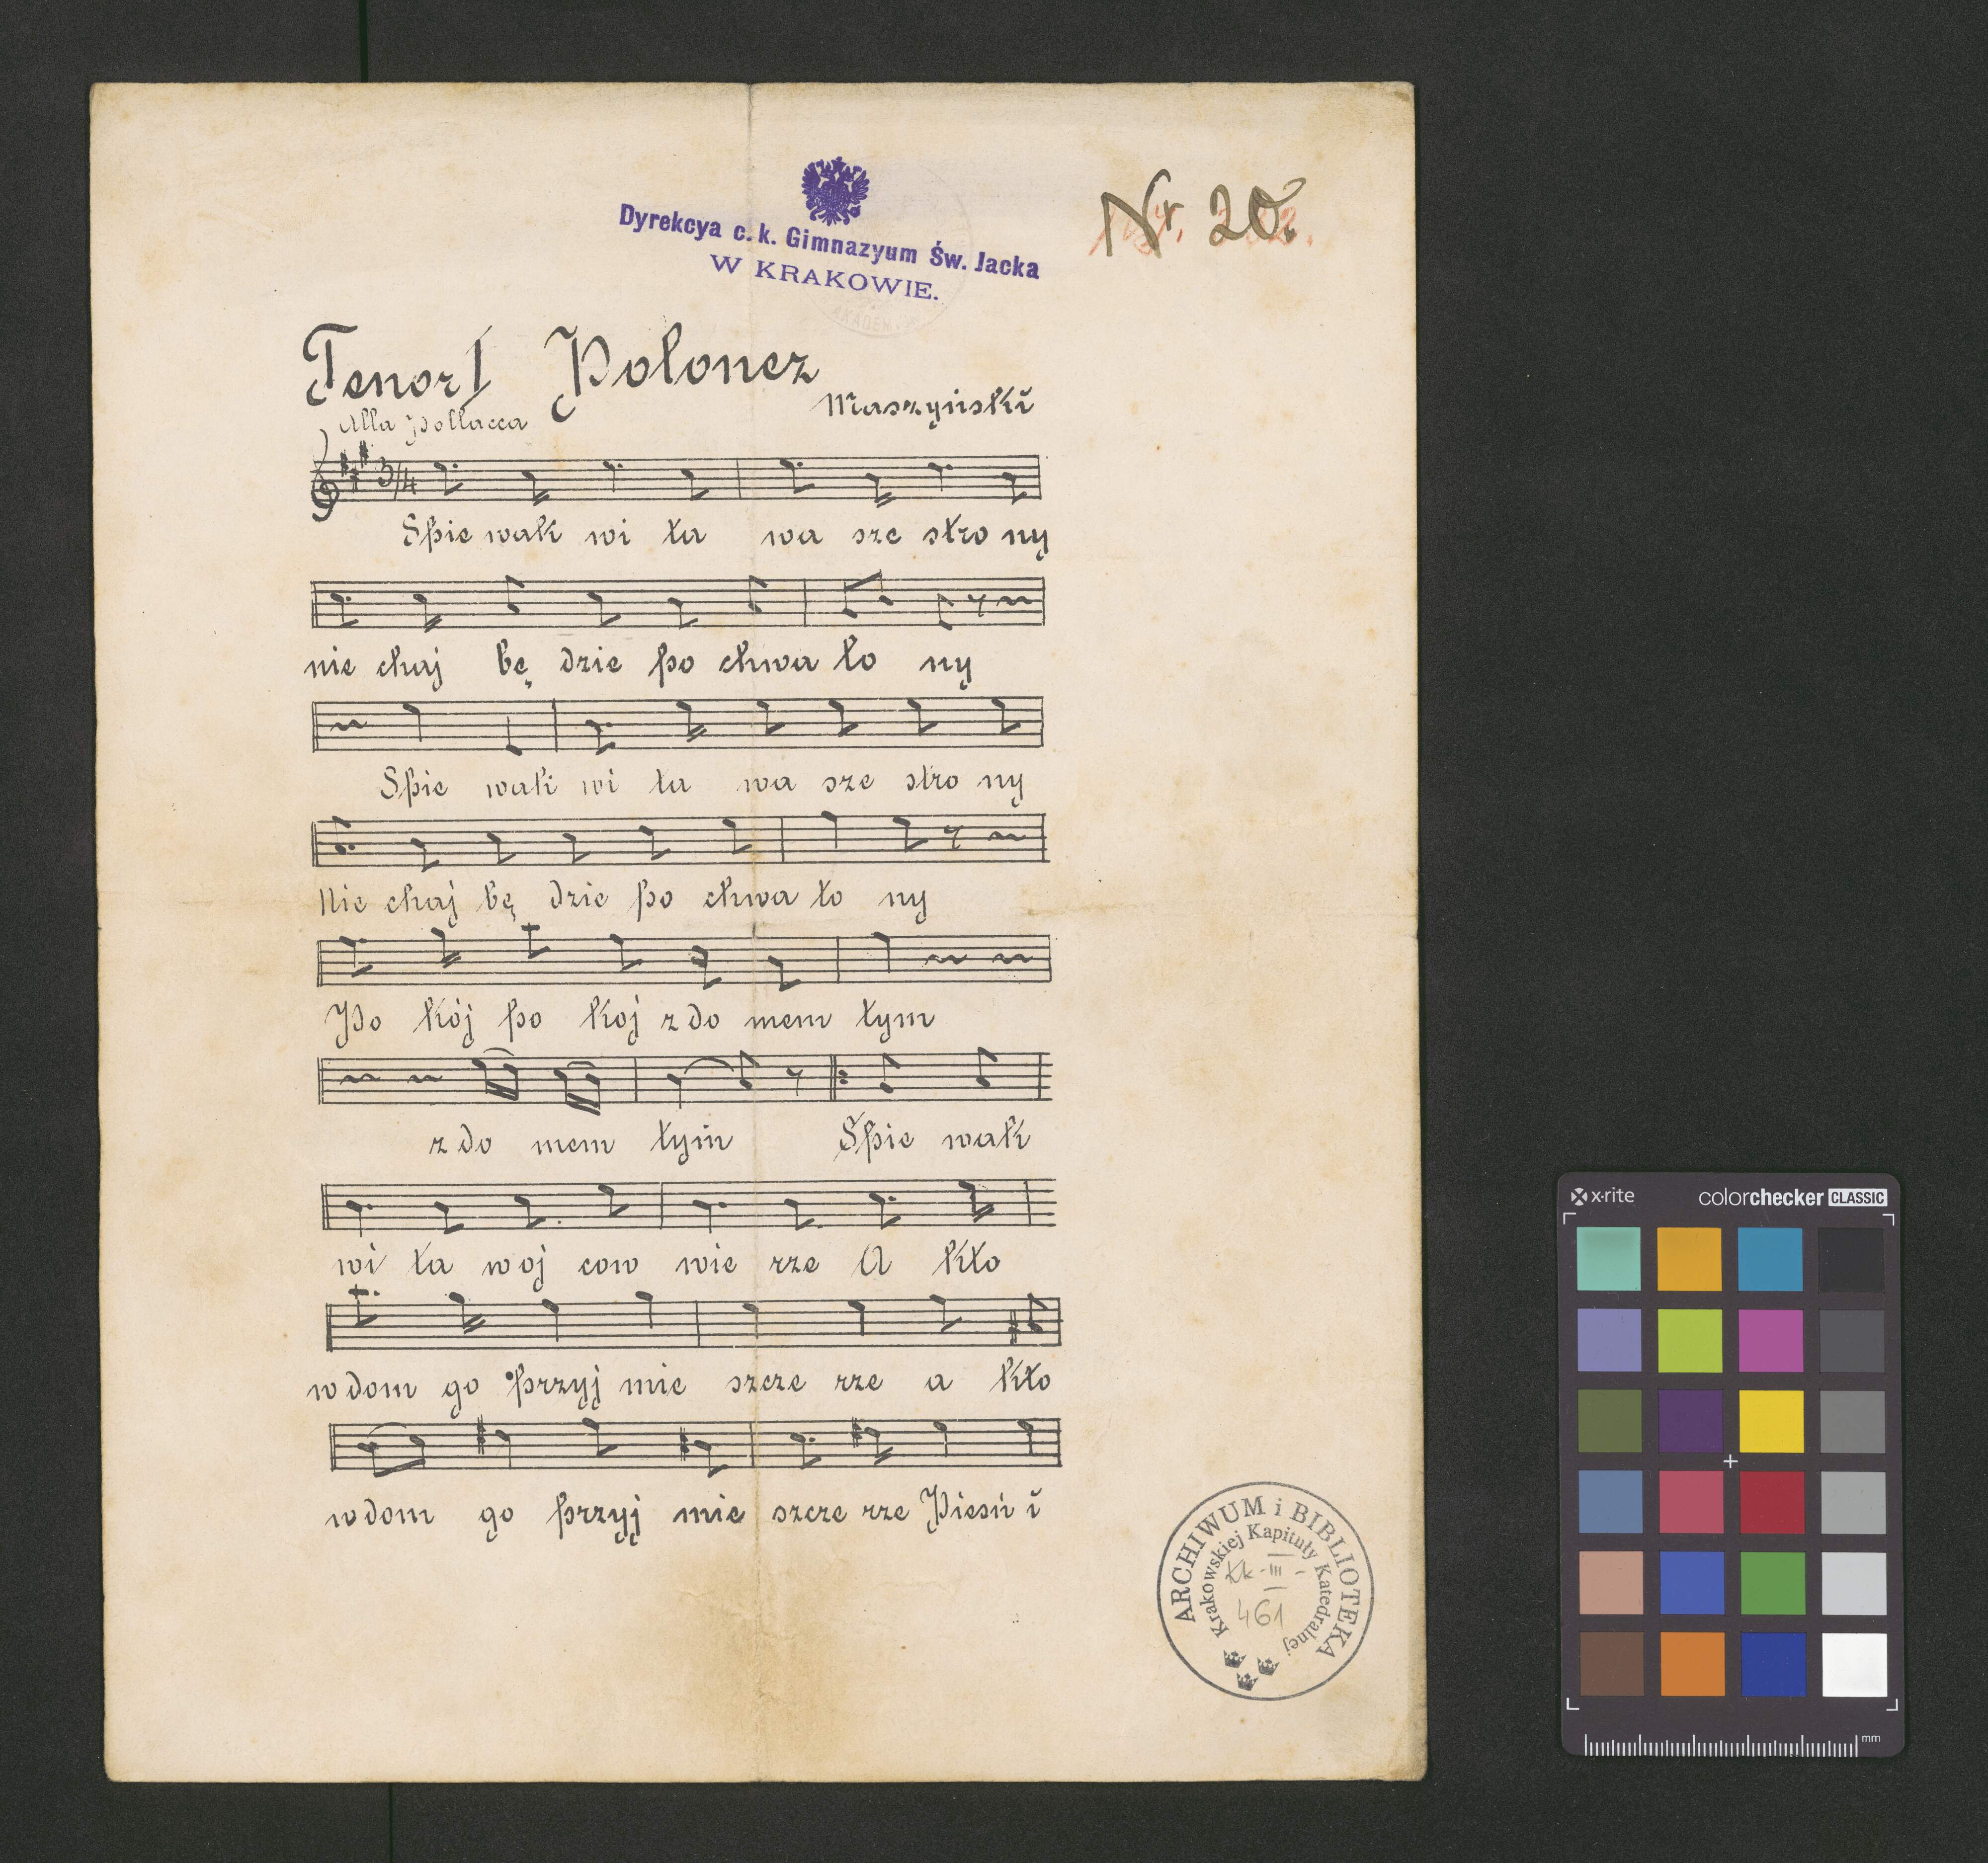 Dyrekcya c. k. Gimnazyum Św. Jacka
W KRAKOWIE.
Nr 20.
Tenor I Polonez
Maszyński
Alla Pollacca
3/4
Spie wak wi ta wa sze stro ny
nie chaj bę dzie po chwa ło ny
Spie wak wi ta wa sze stro ny
Nie chaj bę dzie po chwa ło ny
Po kój po koj z do mem tym
z do mem tym Spie wak
wi ta woj cow wie rze A kto
w dom go przyj mie szcze rze a kto
w dom go przyj mie szcze rze Piesń i
ARCHIWUM i BIBLIOTEKA
Krakowskiej Kapituły Katedralnej
Kk-III-
461
x-rite colorchecker CLASSIC
mm